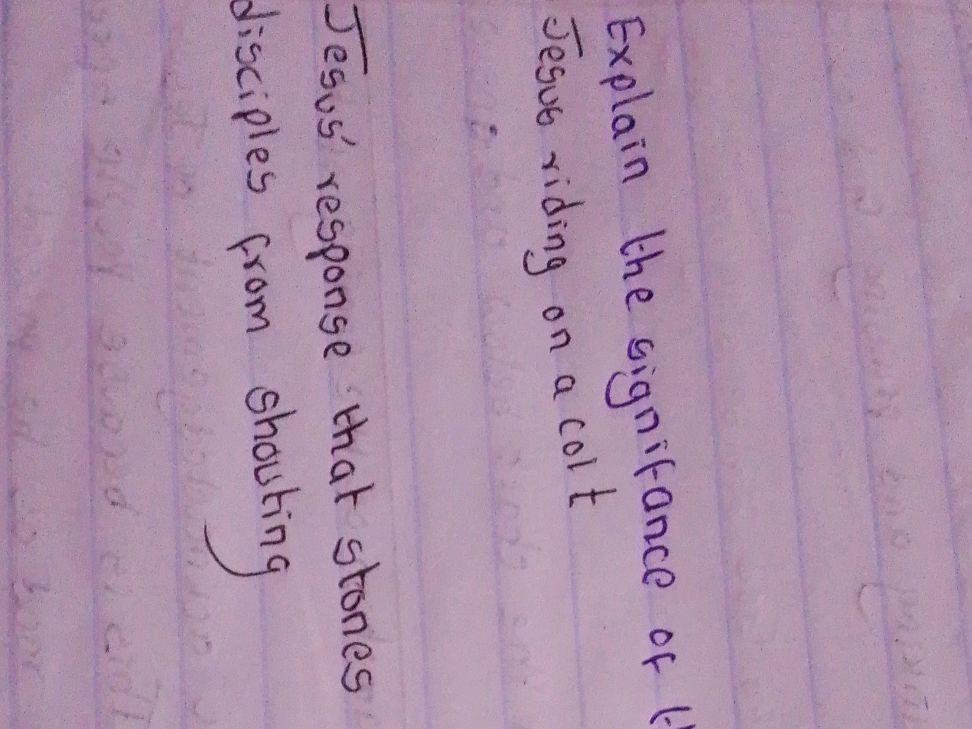 Explain the signifance of
Jesus riding on a colt
Jesus' response that stones
disciples from shouting